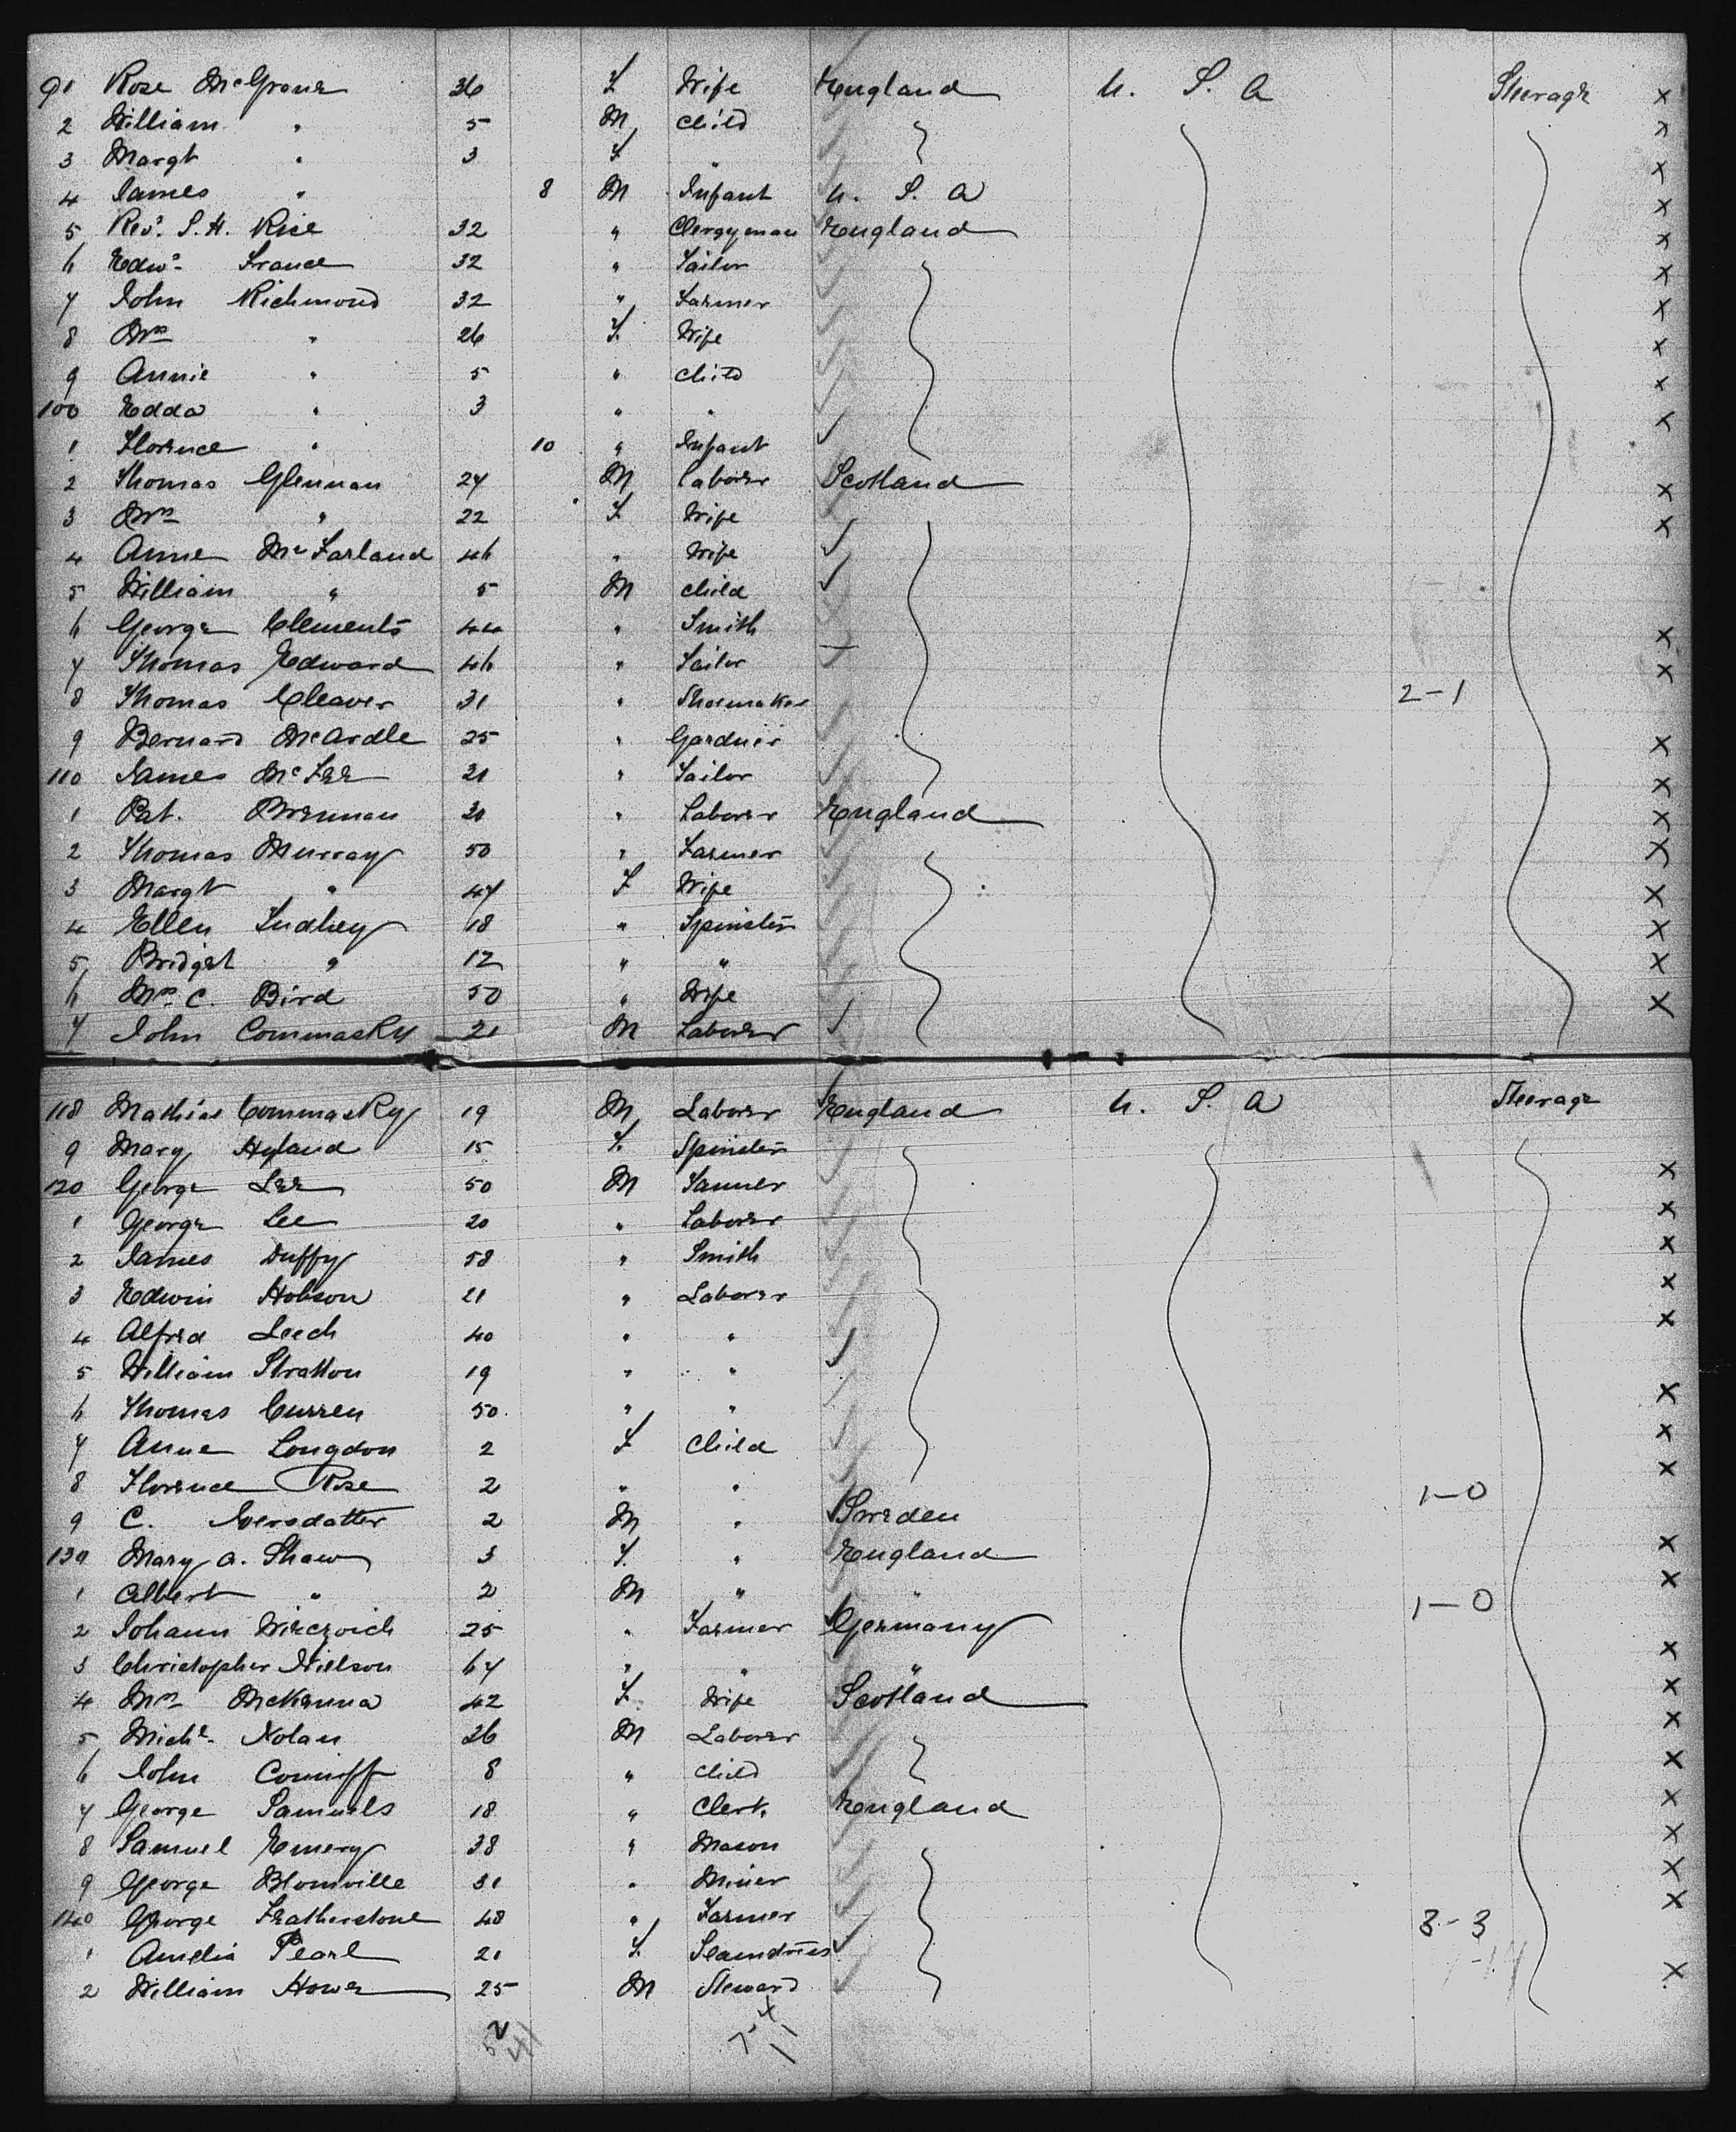 91 Rose McGrane 36 F Wife England U. S. A Steerage x
2 William " 5 M child x
3 Margt " 3 F " x
4 James " 8 M Infant U. S. A x
5 Revd. S. H. Rice 32 " Clergyman England x
6 Edwd. France 32 " Tailor x
7 John Richmond 32 " Farmer x
8 Mrs " 26 F. Wife x
9 Annie " 5 " child x
100 Edda " 3 " " x
1 Florence " 10 " Infant
2 Thomas Glennan 24 M Laborer Scotland x
3 Mrs " 22 F. Wife x
4 Anne McFarland 46 " Wife
5 William " 5 M child
6 George Clements 44 " Smith x
7 Thomas Edward 46 " Tailor x
8 Thomas Cleaver 31 " Shoemaker 2-1
9 Bernard McArdle 25 " Gardner x
110 James McFee 21 " Tailor x
1 Pat. Brennan 30 " Laborer England x
2 Thomas Murray 50 " Farmer x
3 Margt " 47 F Wife x
4 Ellen 18 " Spinster x
5 Bridget " 12 " " x
6 Mrs. C. Bird 50 " Wife x
7 John Commasky 21 M Laborer
118 Mathias Commasky 19 M Laborer England U. S. A Steerage
9 Mary Hyland 15 F. Spinster x
120 George Lee 50 M x
1 George Lee 20 " Laborer x
2 James Duffy 58 " Smith x
3 Edwin Hobson 21 " Laborer x
4 Alfred Leech 40 " "
5 William Stratton 19 " " x
6 Thomas Curren 50 " " x
7 Anne Longdon 2 F Child x
8 Florence Rose 2 " " 1-0
9 C. Iversdatter 2 M " Sweden x
130 Mary A. Shaw 3 F. " England x
1 Albert " 2 M " " 1-0
2 Johann 25 " Farmer Germany x
3 Christopher Nielson 67 " " " x
4 Mrs McKenna 42 F. Wife Scotland x
5 Michl. Nolan 26 M Laborer x
6 John Conniff 8 " child x
7 George Samuels 18 " Clerk England x
8 Samuel Emery 38 " Mason x
9 George Blomville 31 " Miner x
140 George Featherstone 48 " Farmer 3-3
1 Amelia Pearl 21 F. x
2 William Howe 25 M Steward